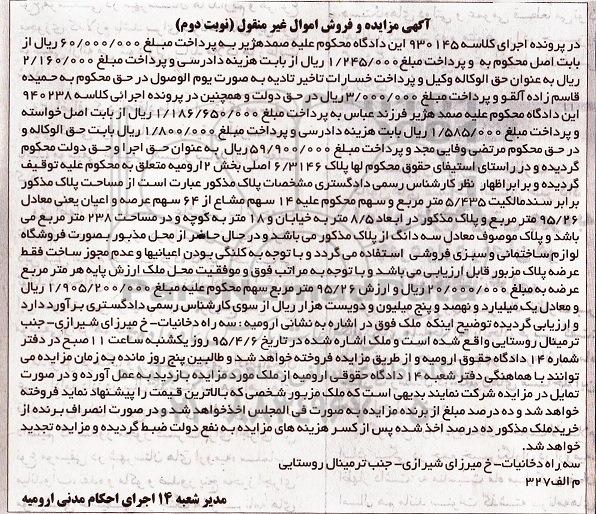 آگهی مزایده و فروش اموال غیر منقول (نوبت دوم)
در پرونده اجرای کلاسه ۹۳۰۱۴۵ این دادگاه محکوم علیه صمد هژیر به پرداخت مبلغ ۶۰/۰۰۰/۰۰۰ ریال از
بابت اصل محکوم به و پرداخت مبلغ ۱/۲۴۵/۰۰۰ ریال از بابت هزینه دادرسی و پرداخت مبلغ ۲/۱۶۰/۰۰۰
ریال به عنوان حق الوکاله وکیل و پرداخت خسارات تاخیر تادیه به صورت یوم الوصول در حق محکوم به حمیده
قاسم زاده آلقو و پرداخت مبلغ ۳/۰۰۰/۰۰۰ ریال در حق دولت و همچنین در پرونده اجرائی کلاسه ۹۴۰۲۳۸
این دادگاه محکوم علیه صمد هژیر فرزند عباس به پرداخت مبلغ ۱/۱۸۶/۶۵۰/۰۰۰ ریال از بابت اصل خواسته
و پرداخت مبلغ ۱/۵۸۵/۰۰۰ ریال بابت هزینه دادرسی و پرداخت مبلغ ۱/۸۰۰/۰۰۰ ریال بابت حق الوکاله و
در حق محکوم مرتضی وفایی مجد و پرداخت مبلغ ۵۹/۹۰۰/۰۰۰ ریال به عنوان حق اجرا و حق دولت محکوم
گردیده و در راستای استیفای حقوق محکوم لها پلاک ۶/۳۱۴۶ اصلی بخش ۲ ارومیه متعلق به محکوم علیه توقیف
گردیده و برابر اظهار نظر کارشناس رسمی دادگستری مشخصات پلاک مذکور عبارت است از مساحت پلاک مذکور
برابر سند مالکیت ۵/۴۳۵ متر مربع و سهم محکوم علیه ۱۴ سهم مشاع از ۶۴ سهم عرصه و اعیان یعنی معادل
۹۵/۲۶ متر مربع و پلاک مذکور در ابعاد ۸/۵ متر به خیابان و ۱۸ متر به کوچه و در مساحت ۲۳۸ متر مربع می
باشد و پلاک موصوف معادل سه دانگ از پلاک مذکور می باشد و در حال حاضر از محل مذبور بصورت فروشگاه
لوازم ساختمانی و سبزی فروشی استفاده می گردد و با توجه به کلنگی بودن اعیانیها و عدم مجوز ساخت فقط
عرصه پلاک مزبور قابل ارزیابی می باشد و با توجه به مراتب فوق و موفقیت محل ملک ارزش پایه هر متر مربع
عرصه به مبلغ ۲۰/۰۰۰/۰۰۰ ریال و ارزش ۹۵/۲۶ متر مربع سهم محکوم علیه مبلغ ۱/۹۰۵/۲۰۰/۰۰۰ ریال
و معادل یک میلیارد و نهصد و پنج میلیون و دویست هزار ریال از سوی کارشناس رسمی دادگستری برآورد دارد
و ارزیابی گردیده توضیح اینکه ملک فوق در اشاره به نشانی ارومیه : سه راه دخانیات- خ میرزای شیرازی- جنب
ترمینال روستایی واقع شده است و ملک اشاره شده در تاریخ ۹۵/۴/۶ روز یکشنبه ساعت ۱۱ صبح در دفتر
شماره ۱۴ دادگاه حقوق ارومیه و از طریق مزایده فروخته خواهد شد و طالبین پنج روز مانده به زمان مزایده می
توانند با هماهنگی دفتر شعبه ۱۴ دادگاه حقوقی ارومیه از ملک مورد مزایده بازدید به عمل آورده و در صورت
تمایل در مزایده شرکت نمایند بدیهی است که ملک مزبور شخصی که بالاترین قیمت را پیشنهاد نماید فروخته
خواهد شد و ده درصد مبلغ از برنده مزایده به صورت فی المجلس اخذ خواهد شد و در صورت انصراف برنده از
خرید ملک مذکور ده درصد اخذ شده پس از کسر هزینه های مزایده به نفع دولت ضبط گردیده و مزایده تجدید
خواهد شد.
سه راه دخانیات- خ میرزای شیرازی- جنب ترمینال روستایی
م الف ۳۲۷
مدیر شعبه ۱۴ اجرای احکام مدنی ارومیه